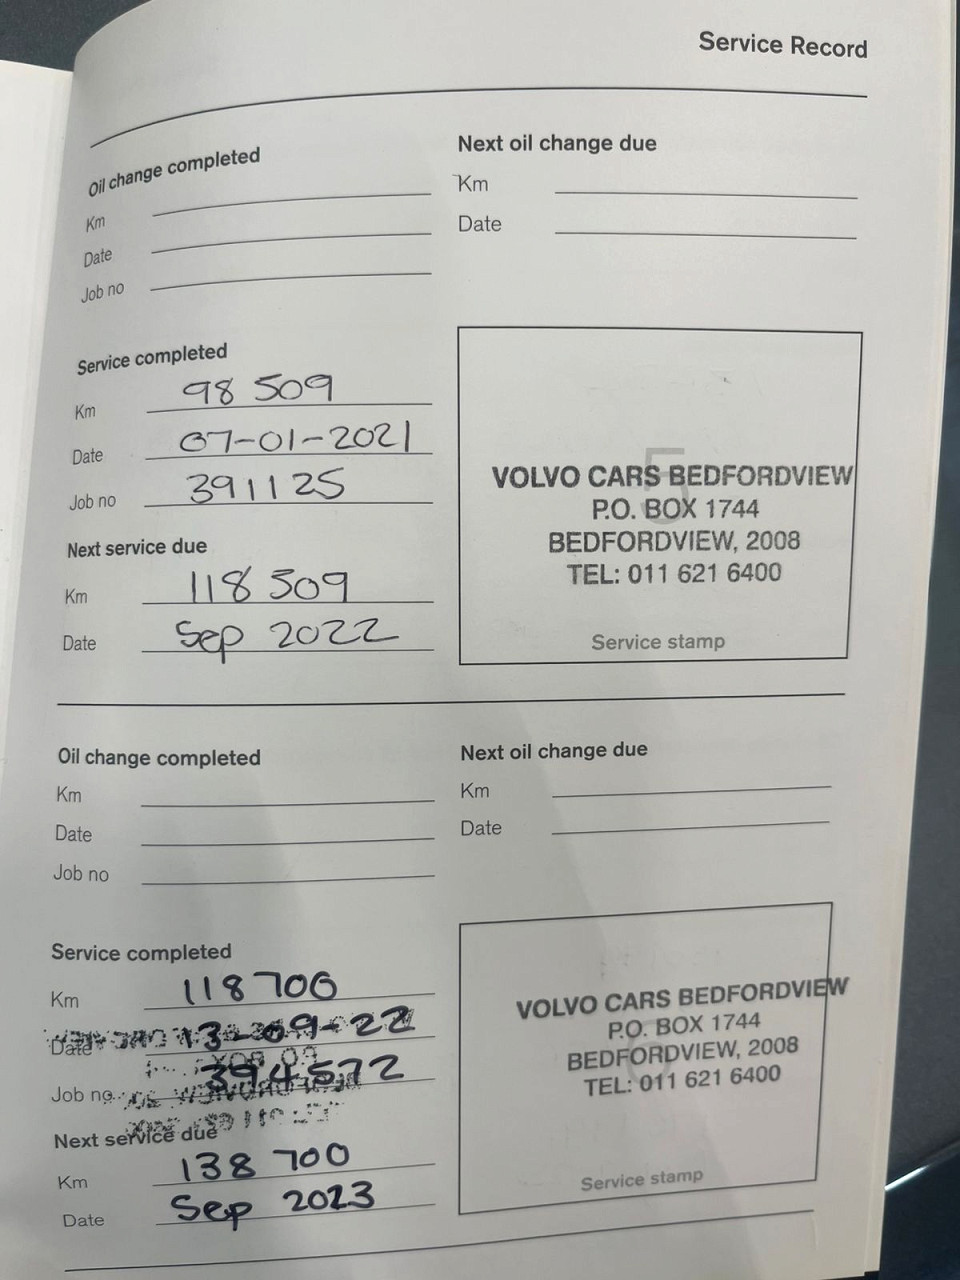 Service Record
Oil change completed
Km
Date
Job no
Next oil change due
Km
Date
Service completed
Km 98 509
Date 07-01-2021
Job no 391125
Next service due
Km 118 509
Date Sep 2022
5
VOLVO CARS BEDFORDVIEW
P.O. BOX 1744
BEDFORDVIEW, 2008
TEL: 011 621 6400
Service stamp
Oil change completed
Km
Date
Job no
Next oil change due
Km
Date
Service completed
Km 118 700
Date 13-09-22
Job no 394572
Next service due
Km 138 700
Date Sep 2023
6
VOLVO CARS BEDFORDVIEW
P.O. BOX 1744
BEDFORDVIEW, 2008
TEL: 011 621 6400
Service stamp